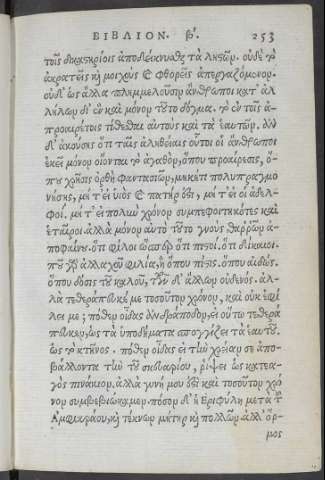 ΒΙΒΛΙΟΝ. β'. 253
τοῖς δικαστηρίοις ἀποδεικνυθς τὰ λῃστῶν. οὐδὲ τ
ἀκρατεῖς κὴ μοιχοὺς καὶ φθορεῖς ἀπεργαζόμενον.
οὐδ' ὡς ἄλλα πλημμελοῦσιν ἄνθρωποι κατ' ἀλ
λήλων δι' ἓν καὶ μόνον τοῦτο δόγμα. τὸ ἐν τοῖς ἀ
προαιρέτοις τίθεσθαι αὑτοὺς καὶ τὰ ἑαυτῶν. ἀλλ'
ἂν ἀκούσῃς ὅτι ταῖς ἀληθείαις οὗτοι οἱ ἄνθρωποι
ἐκεῖ μόνον οἴονται τὸ ἀγαθὸν, ὅπου προαίρεσις, ὅ-
που χρῆσις ὀρθὴ φαντασιῶν, μηκέτι πολυπραγμο
νήσῃς, μήτ' εἰ υἱὸς καὶ πατήρ ὅδι, μήτ' εἰ οἱ ἀδελ-
φοί. μήτ' εἰ πολὺν χρόνον συμπεφοιτηκότες καὶ
ἑταῖροι. ἀλλὰ μόνον αὐτὸ τοῦτο γνοὺς θαρρῶν ἀ-
ποφαίνου. ὅτι φίλοι ὥσπερ ὅτι πιστοὶ. ὅτι δίκαιοι.
ποῦ γὰρ ἀλλαχοῦ φιλία, ἢ ὅπου πίστις. ὅπου αἰδὼς.
ὅπου δόσις τοῦ καλοῦ, τῶν δ' ἄλλων οὐδενός. ἀλ-
λὰ τεθεράπευκέ με τοσούτῳ χρόνῳ, καὶ οὐκ ἐφί
λει με; πόθεν οἶδας ἀνδράποδον, εἰ οὕτω τεθερά
πευκεν, ὡς τὰ ὑποδήματα σπογγίζει τὰ ἑαυτοῦ.
ὡς τὸ κτῆνος. πόθεν οἶδας εἰ τὴν χρείαν σε ἀπο-
βαλόντα τὴν τοῦ σκευαρίου, ῥίψει ὡς κατεα-
γὸς πινάκιον. ἀλλὰ γυνή μου ὅδι καὶ τοσοῦτον χρό
νον συμβεβιώκαμεν. πόσον δ' ἡ Εριφύλη μετὰ τ
Αμφιαράου, κὴ τέκνων μήτηρ κὴ πολλῶν ἀλλ' ὅρ-
μος